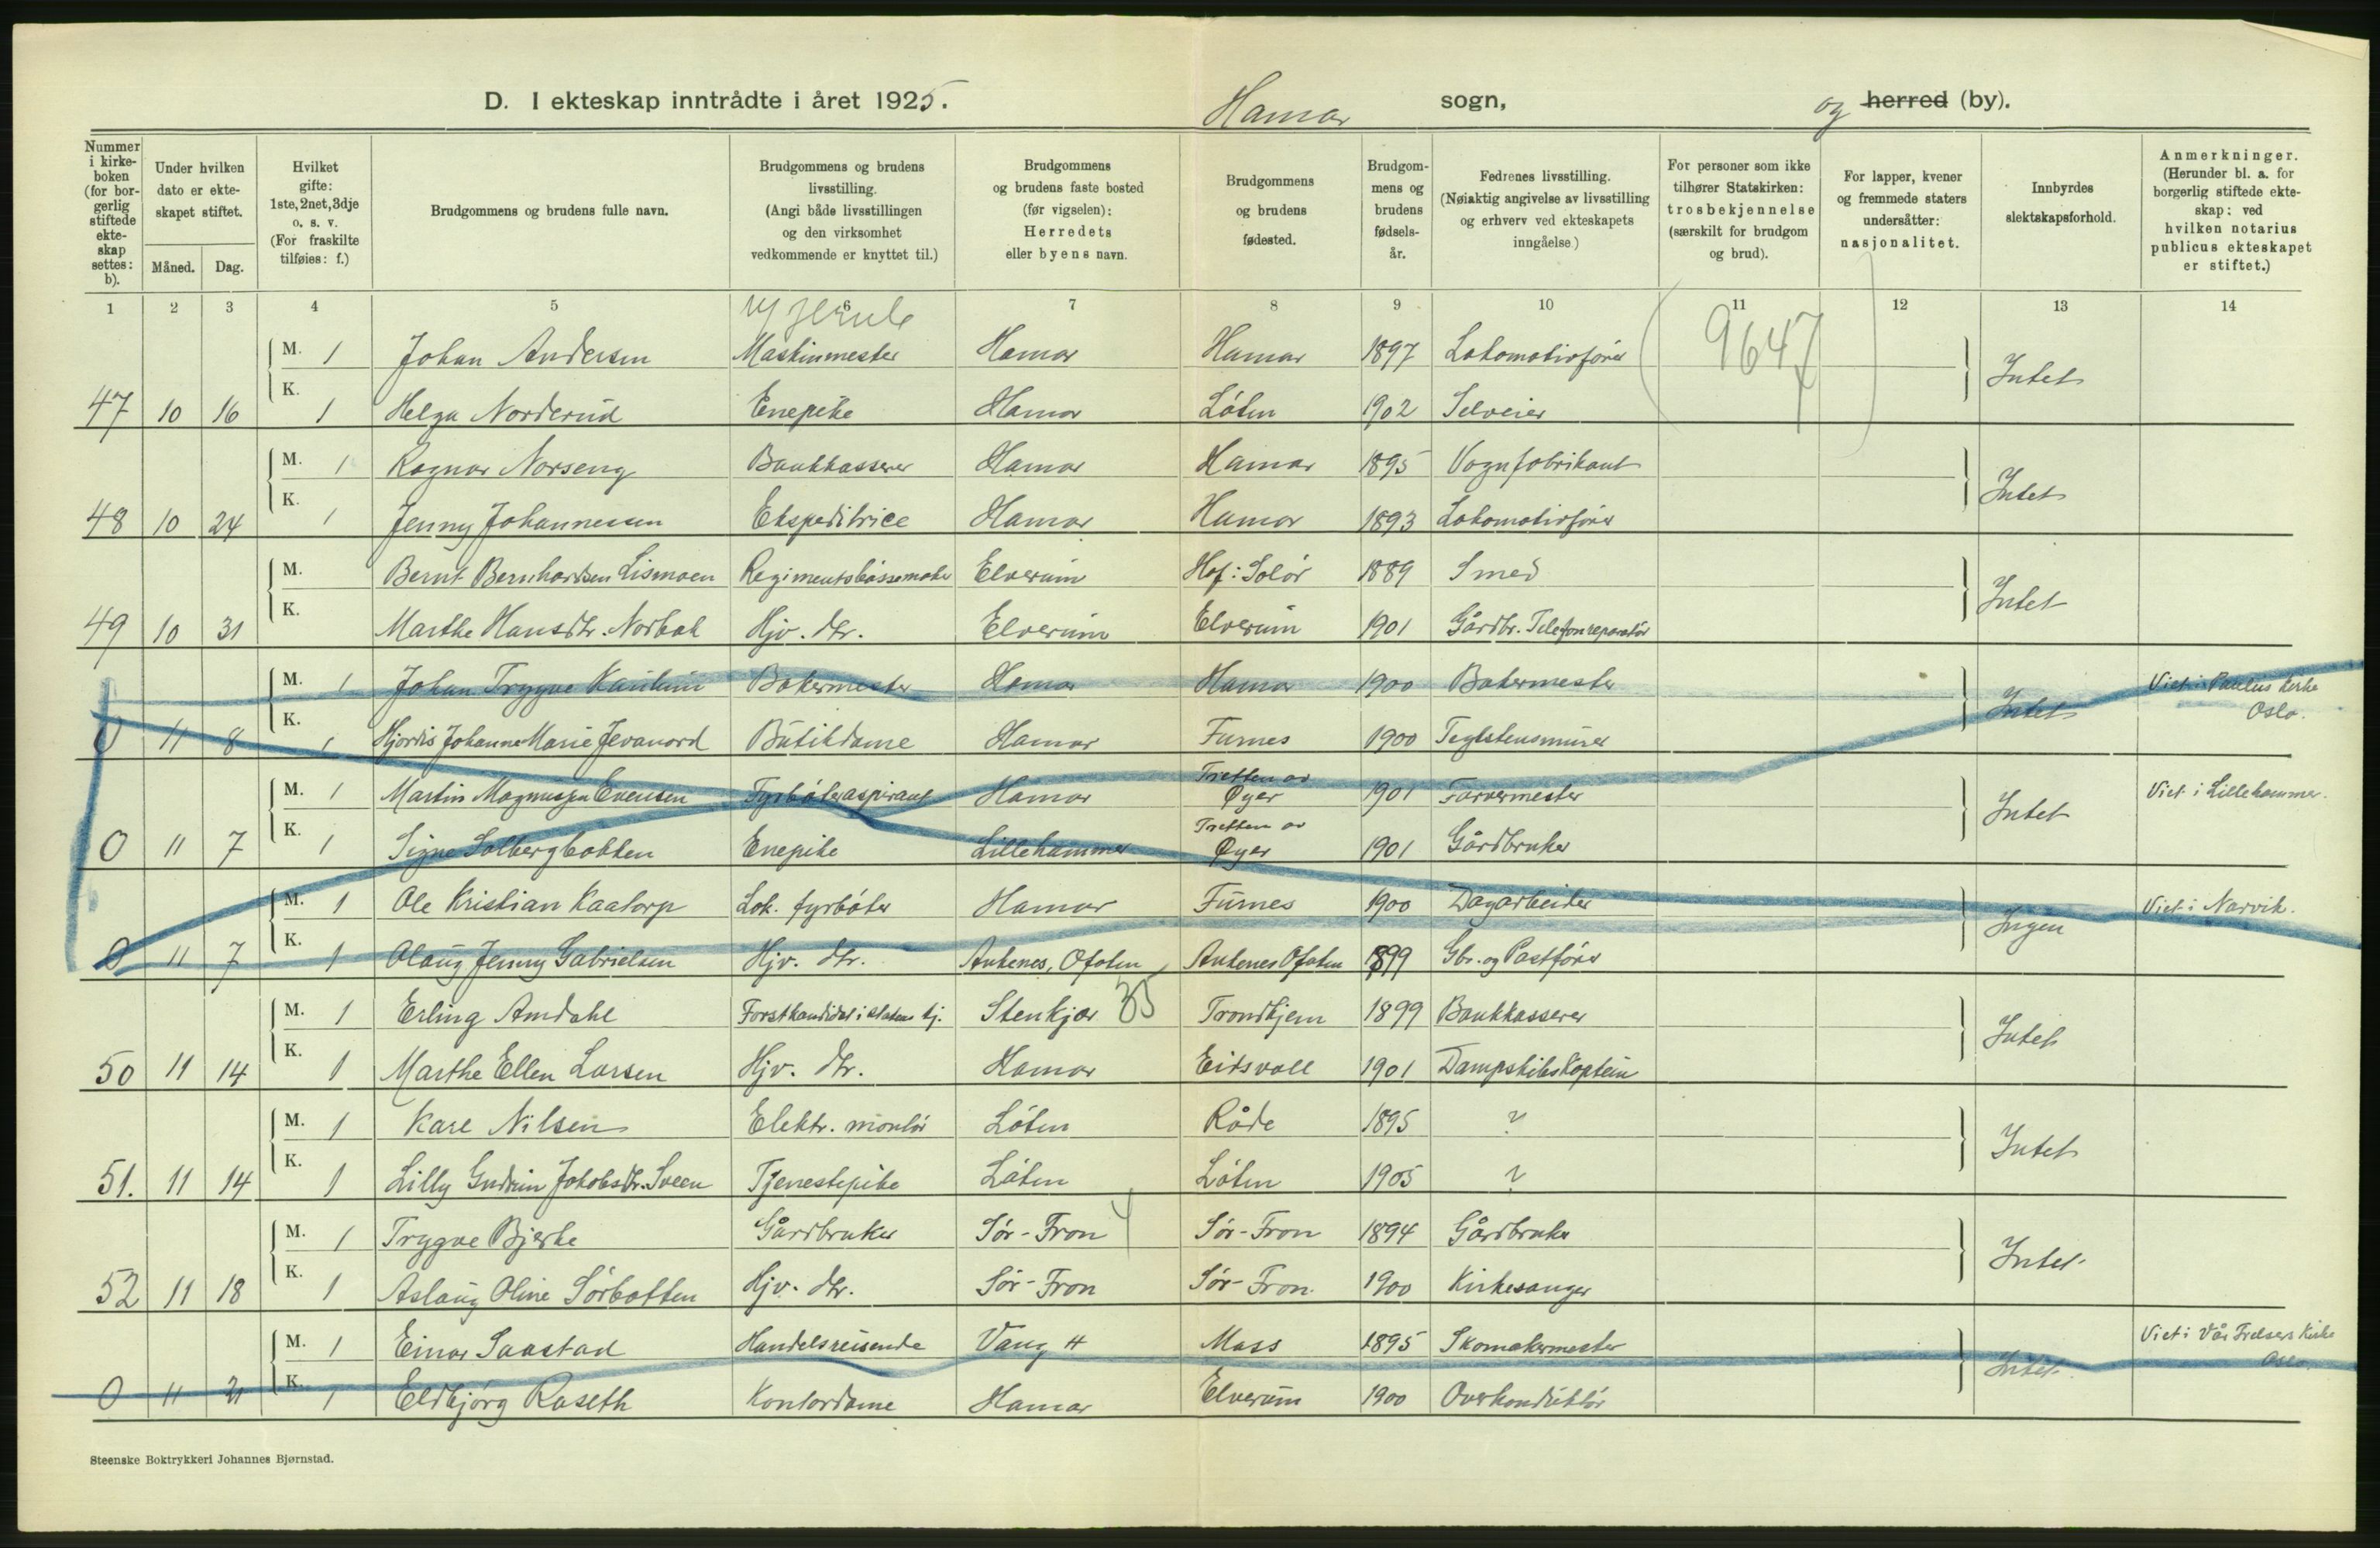 D. I ekteskap inntrådte i året 1925. Hamar sogn, og herred (by).
Nummer i kirkeboken (for borgerlig stiftede ekteskap settes: b).
Under hvilken dato er ekteskapet stiftet.
Måned. Dag.
Hvilket gifte: 1ste, 2net, 3dje o. s. v. (For fraskilte tilføies: f.)
Brudgommens og brudens fulle navn.
Brudgommens og brudens livsstilling. (Angi både livsstillingen og den virksomhet vedkommende er knyttet til.)
Brudgommens og brudens faste bosted (før vigselen): Herredets eller byens navn.
Brudgommens og brudens fødested.
Brudgommens og brudens fødselsår.
Fedrenes livsstilling. (Nøiaktig angivelse av livsstilling og erhverv ved ekteskapets inngåelse.)
For personer som ikke tilhører Statskirken: trosbekjennelse (særskilt for brudgom og brud).
For lapper, kvener og fremmede staters undersåtter: nasjonalitet.
Innbyrdes slektskapsforhold.
Anmerkninger. (Herunder bl. a. for borgerlig stiftede ekteskap: ved hvilken notarius publicus ekteskapet er stiftet.)
1 2 3 4 5 6 7 8 9 10 11 12 13 14
M. 1 Johan Andersen Maskinmester Hamar Hamar 1897 Lokomotivfører (9647) Intet
47 10 16 K. 1 Helga Norderud Enepike Hamar Løten 1902 Selveier
M. 1 Ragnar Norseng Bankkasserer Hamar Hamar 1895 Vognfabrikant Intet
48 10 24 K. 1 Jenny Johannessen Ekspeditrice Hamar Hamar 1893 Lokomotivfører
M. Bernt Bernhardsen Lismoen Regimentsbøssemaker Elverum Hof: Solør 1889 Smed Intet
49 10 31 K. Marthe Hansdtr. Norbak Hjv. dtr. Elverum Elverum 1901 Gårdbr. Telefonreparatør
M. 1 Johan Trygve Kaulum Bakermester Hamar Hamar 1900 Bakermester Intet Viet i Paulus Kirke
Oslo.
0 11 8 K. 1 Hjørdis Johanne Marie Jevanord Butikdame Hamar Furnes 1900 Teglstensmurer
M. 1 Martin Magnussen Evensen Fyrbøteraspirant Hamar Tretten av Øyer 1901 Farvermester Intet Viet i Lillehammer.
0 11 7 K. 1 Signe Solbergbakken Enepike Lillehammer Tretten av Øyer 1901 Gårdbruker
M. 1 Ole Kristian Kaatorp Lok. fyrbøter Hamar Furnes 1900 Dagarbeider Ingen Viet i Narvik.
0 11 7 K. 1 Olaug Jenny Gabrielsen Hjv. dtr. Ankenes, Ofoten Ankenes Ofoten 1899 Gbr. og Postfører
M. 1 Erling Amdahl Forstkandidat i statens tj. Stenkjær 35 Trondhjem 1899 Bankkasserer Intet
50 11 14 K. 1 Marthe Ellen Larsen Hjv. dtr. Hamar Eidsvoll 1901 Dampskibskaptein
M. 1 Kare Nilsen Elektr. montør Løten Råde 1895 ? Intet
51. 11 14 K. 1 Lilly Gudrun Jakobsdtr. Sveen Tjenestepike Løten Løten 1905 ?
M. 1 Trygve Bjerke Gårdbruker Sør-Fron 4 Sør-Fron 1894 Gårdbruker Intet
52 11 18 K. 1 Aslaug Oline Sørbotten Hjv. dtr. Sør-Fron Sør-Fron. 1900 Kirkesanger
M. 1 Einar Saastad Handelsreisende Vang H Moss 1895 Skomakermester Intet. Viet i Vår Frelsers Kirke
Oslo.
0 11 21 K. 1 Eldbjørg Raseth Kontordame Hamar Elverum 1900 Overkonduktør
Steenske Boktrykkeri Johannes Bjørnstad.